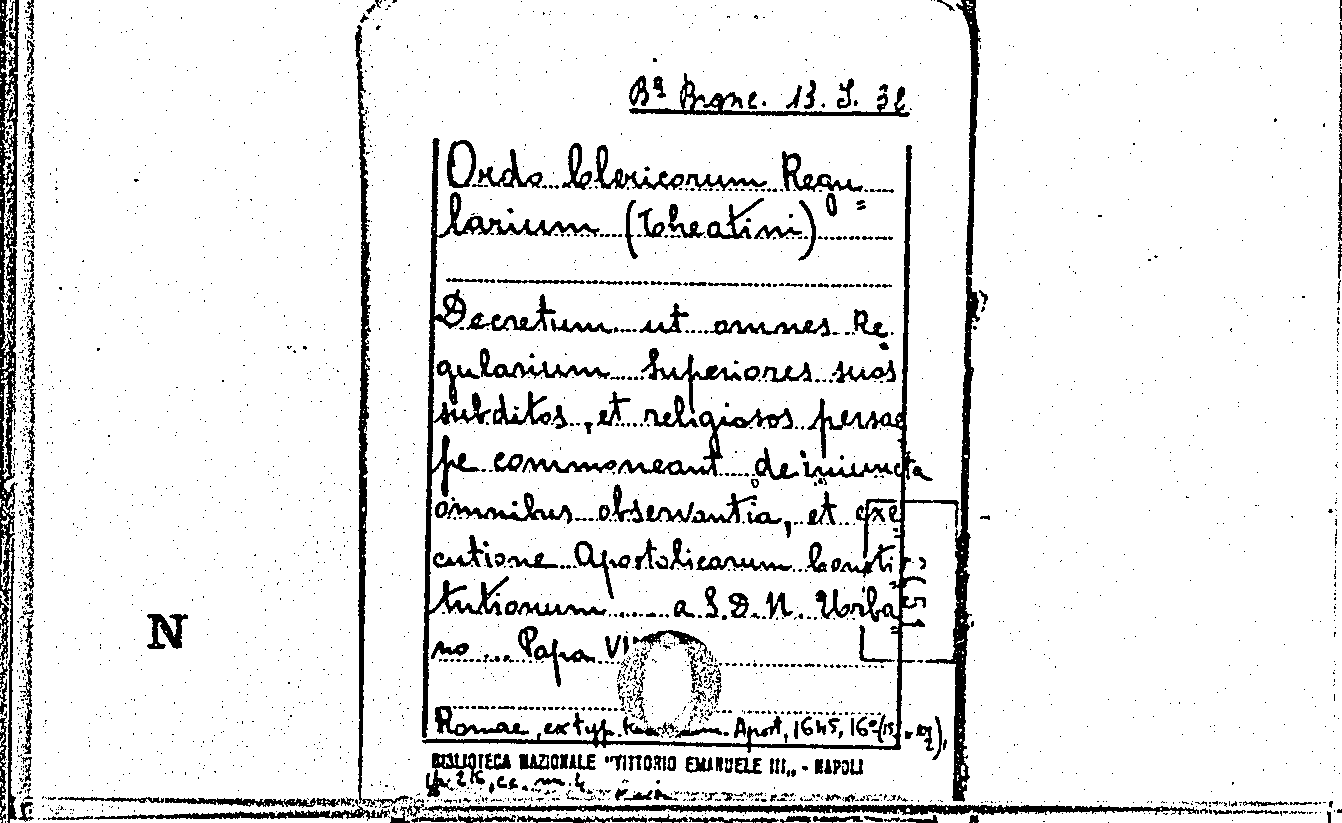 Bª Branc. 13. J. 32
Ordo Clericorum Regu=
larium (Theatini)
Decretum ut omnes Re
gularium Superiores suos
subditos, et religiosos persae
pe commoneant de iniuncta
omnibus observantia, et exe
cutione Apostolicarum Consti
tutionum ... a S. D. N. Urba
no ... Papa VI
Romae, ex typ. Apost, 1645, 16º
BIBLIOTECA NAZIONALE "VITTORIO EMANUELE III„ - NAPOLI
N